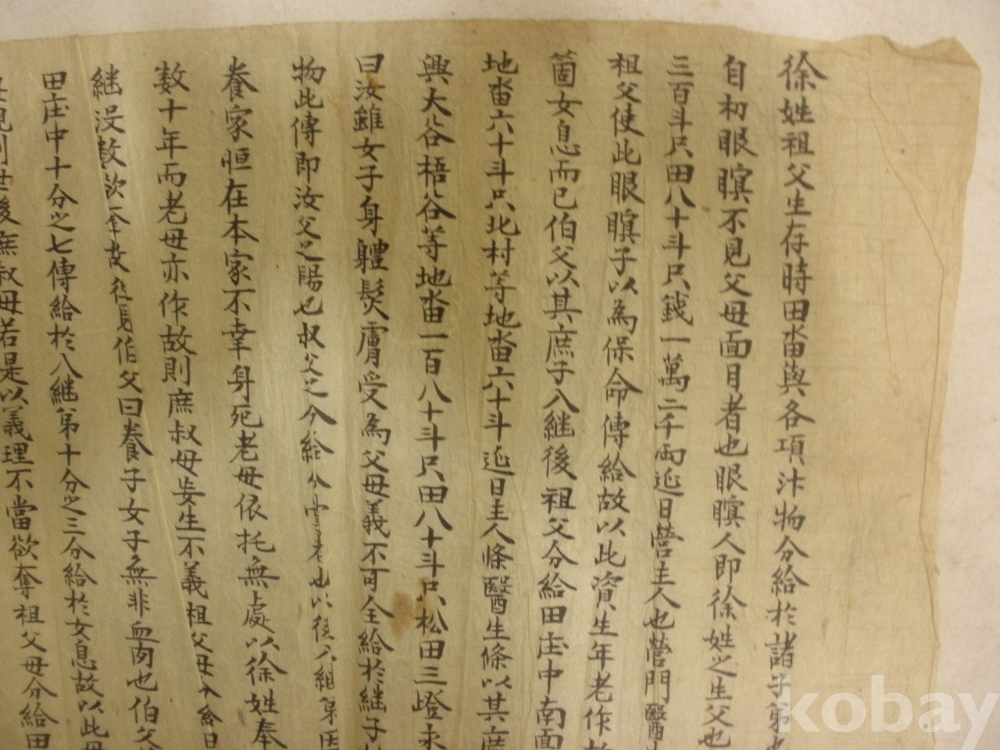 徐姓祖父生存時田畓與各項汁物分給於諸子第
自初眼瞑不見父母面目者也眼瞑人即徐姓之生父也
三百斗只田八十斗只錢一萬二千兩迎日營主人也營門醫
祖父使此眼瞑子以為保命傳給故以此資生年老作故
箇女息而已伯父以其庶子八継後祖父分給田庄中南面
地畓六十斗只北村等地畓六十斗迎日主人條醫生條以其庶
興大谷梧谷等地畓一百八十斗只田八十斗只松田三嶝永
曰汝雖女子身軆髮膚受為父母義不可全給於継子
物此傳即汝父之賜也叔父之今給 也以後 因
養家恒在本家不幸身死老母依托無處以徐姓奉
数十年而老母亦作故則庶叔母妄生不義祖父母 給日
継没数欲奪 伯父曰養子女子無非血肉也伯父
田庄中十分之七傳給於八継第十分之三分給於女息故以此母
後庶叔母若是以義理不當欲奪祖父母分給田
kobay